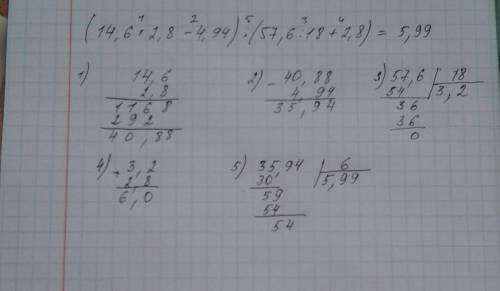 (14,6 · 2,8 - 4,94) : (57,6 : 18 + 2,8) = 5,99
1 2 5 3 4
1) 14,6 2) - 40,88 3) 57,6 | 18
2,8 4,94 54 3,2
1168 35,94 36
292 36
40,88 0
4) + 3,2 5) 35,94 | 6
2,8 30 5,99
6,0 59
54
54